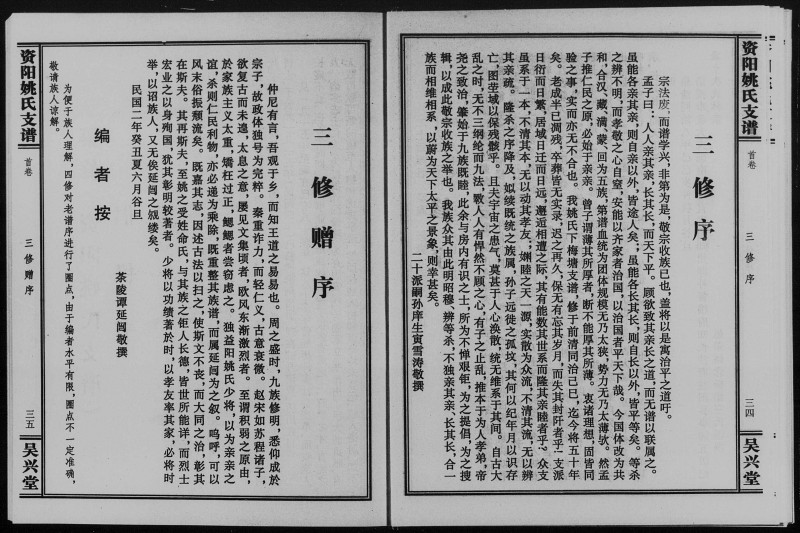 资阳姚氏支谱
首卷
三修序
三四
吴兴堂
三修序
宗法废,而谱学兴,非第为是,敬宗收族已也,盖将以是寓治平之道吁。
孟子曰:人人亲其亲,长其长,而天下平。顾欲致其亲长之道,而无谱以联属之。
虽能各亲其亲,则自亲以外,皆途人矣,虽能各长其长,则自长以外,皆平等矣。等杀
之辨不明,而孝敬之心自窒,安能以齐家者治国,以治国者平天下哉。今国体改为共
和,合汉、藏、满、蒙、回为五族,第谱血统为团体规模无乃太狭,势力无乃太薄欤。然孟
子推仁民之原,必始于亲亲。曾子谓薄其所厚者,断不能厚其所薄。衷诸理想,固皆同
验之事,实而亦无不合也。我姚氏下梅塘支谱,修于前清同治己巳,迄今将五十年
矣。老成半已凋残,卒葬皆无实录,迟之再久,保无有忘其岁月,而失其封阡者乎?支派
日衍而日繁,居域日迁而日远,邂逅相遭之际,其有能数其世系而隆其亲睦者乎?众支
虽系于一本,不清其本,无以动其孝友;姻睦之天一源,实散为众流,不清其流,无以辨
其亲疏。隆杀之序降及,姒续既统之族属,孙子远徙之孤坟,其何以纪年月以识存
亡,图茔域以保残骸乎。且夫宇宙之患气,莫甚于人心涣散,统无维系于其间。自古大
乱之时,无不三纲纶而九法,斁人人有悍然不顾之心,有子之止乱,推本于为人孝弟,帝
尧之致治,肇始于九族既睦,此余与房内有识之士,所为不惮艰钜,为之提倡,为之搜
辑,以成此敬宗收族之举也。我族众其由此明昭穆、辨等杀、不独亲其亲、长其长,合一
族而相维相系,以蔚为天下太平之景象,则幸甚矣。
二十派嗣孙庠生寅雪涛敬撰
三修赠序
仲尼有言,吾观于乡,而知王道之易易也。周之盛时,九族修明,悉仰成於
宗子,故政体独号为完粹。秦重诈力,而轻仁义,古意衰微。赵宋如苏程诸子,
欲复古而未遑,太息之意,屡见文集顷者,欧风东渐激烈者。至谓积弱之原由,
於家族主义太重,矫枉过正,鳃鳃者尝窃虑之。独益阳姚氏少将,以为亲亲之
谊,杀则仁民利物,亦必递为乘除,既重整其族谱,而属延闿为之叙。呜呼,可以
风末俗振颓流矣。既嘉其志,因述古法以归之,使斯文不丧,而大同之治,彰其
在斯夫。其再斯夫,至姚之受姓命氏,与其族之钜人长德,皆世所能详,而烈士
宏业之以身殉国,犹其彰明较著者。少将以功绩著於时,以孝友率其家,必将时
举,以诏族人,又无俟延闿之觊缕矣。
民国二年癸丑夏六月谷旦
茶陵谭延闿敬撰
编者按
为便于族人理解,四修对老谱序进行了圈点,由于编者水平有限,圈点不一定准确,
敬请族人谅解。
资阳姚氏支谱
首卷
三修赠序
三五
吴兴堂